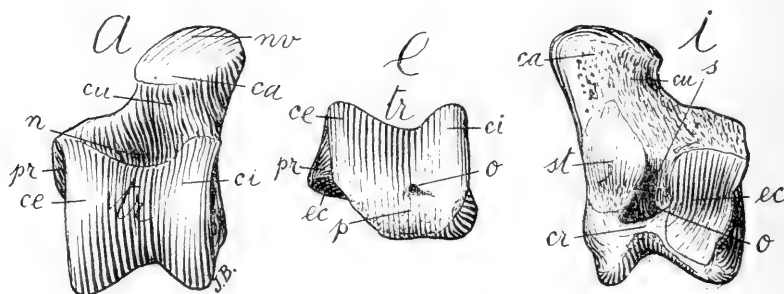 a
nv
ca
cu
n
pr
ce
tr
ci
J.B.
e
tr
ce
ci
pr
o
ec
p
i
ca
s
cu
st
ec
cr
o